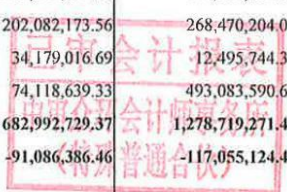 202,082,173.56 268,470,204.0
34,179,016.69 12,495,744.3
74,118,639.33 493,083,590.6
682,992,729.37 1,278,719,271.4
-91,086,386.46 -117,055,124.4
已审会计报表
会计师事务所
(特殊普通合伙)